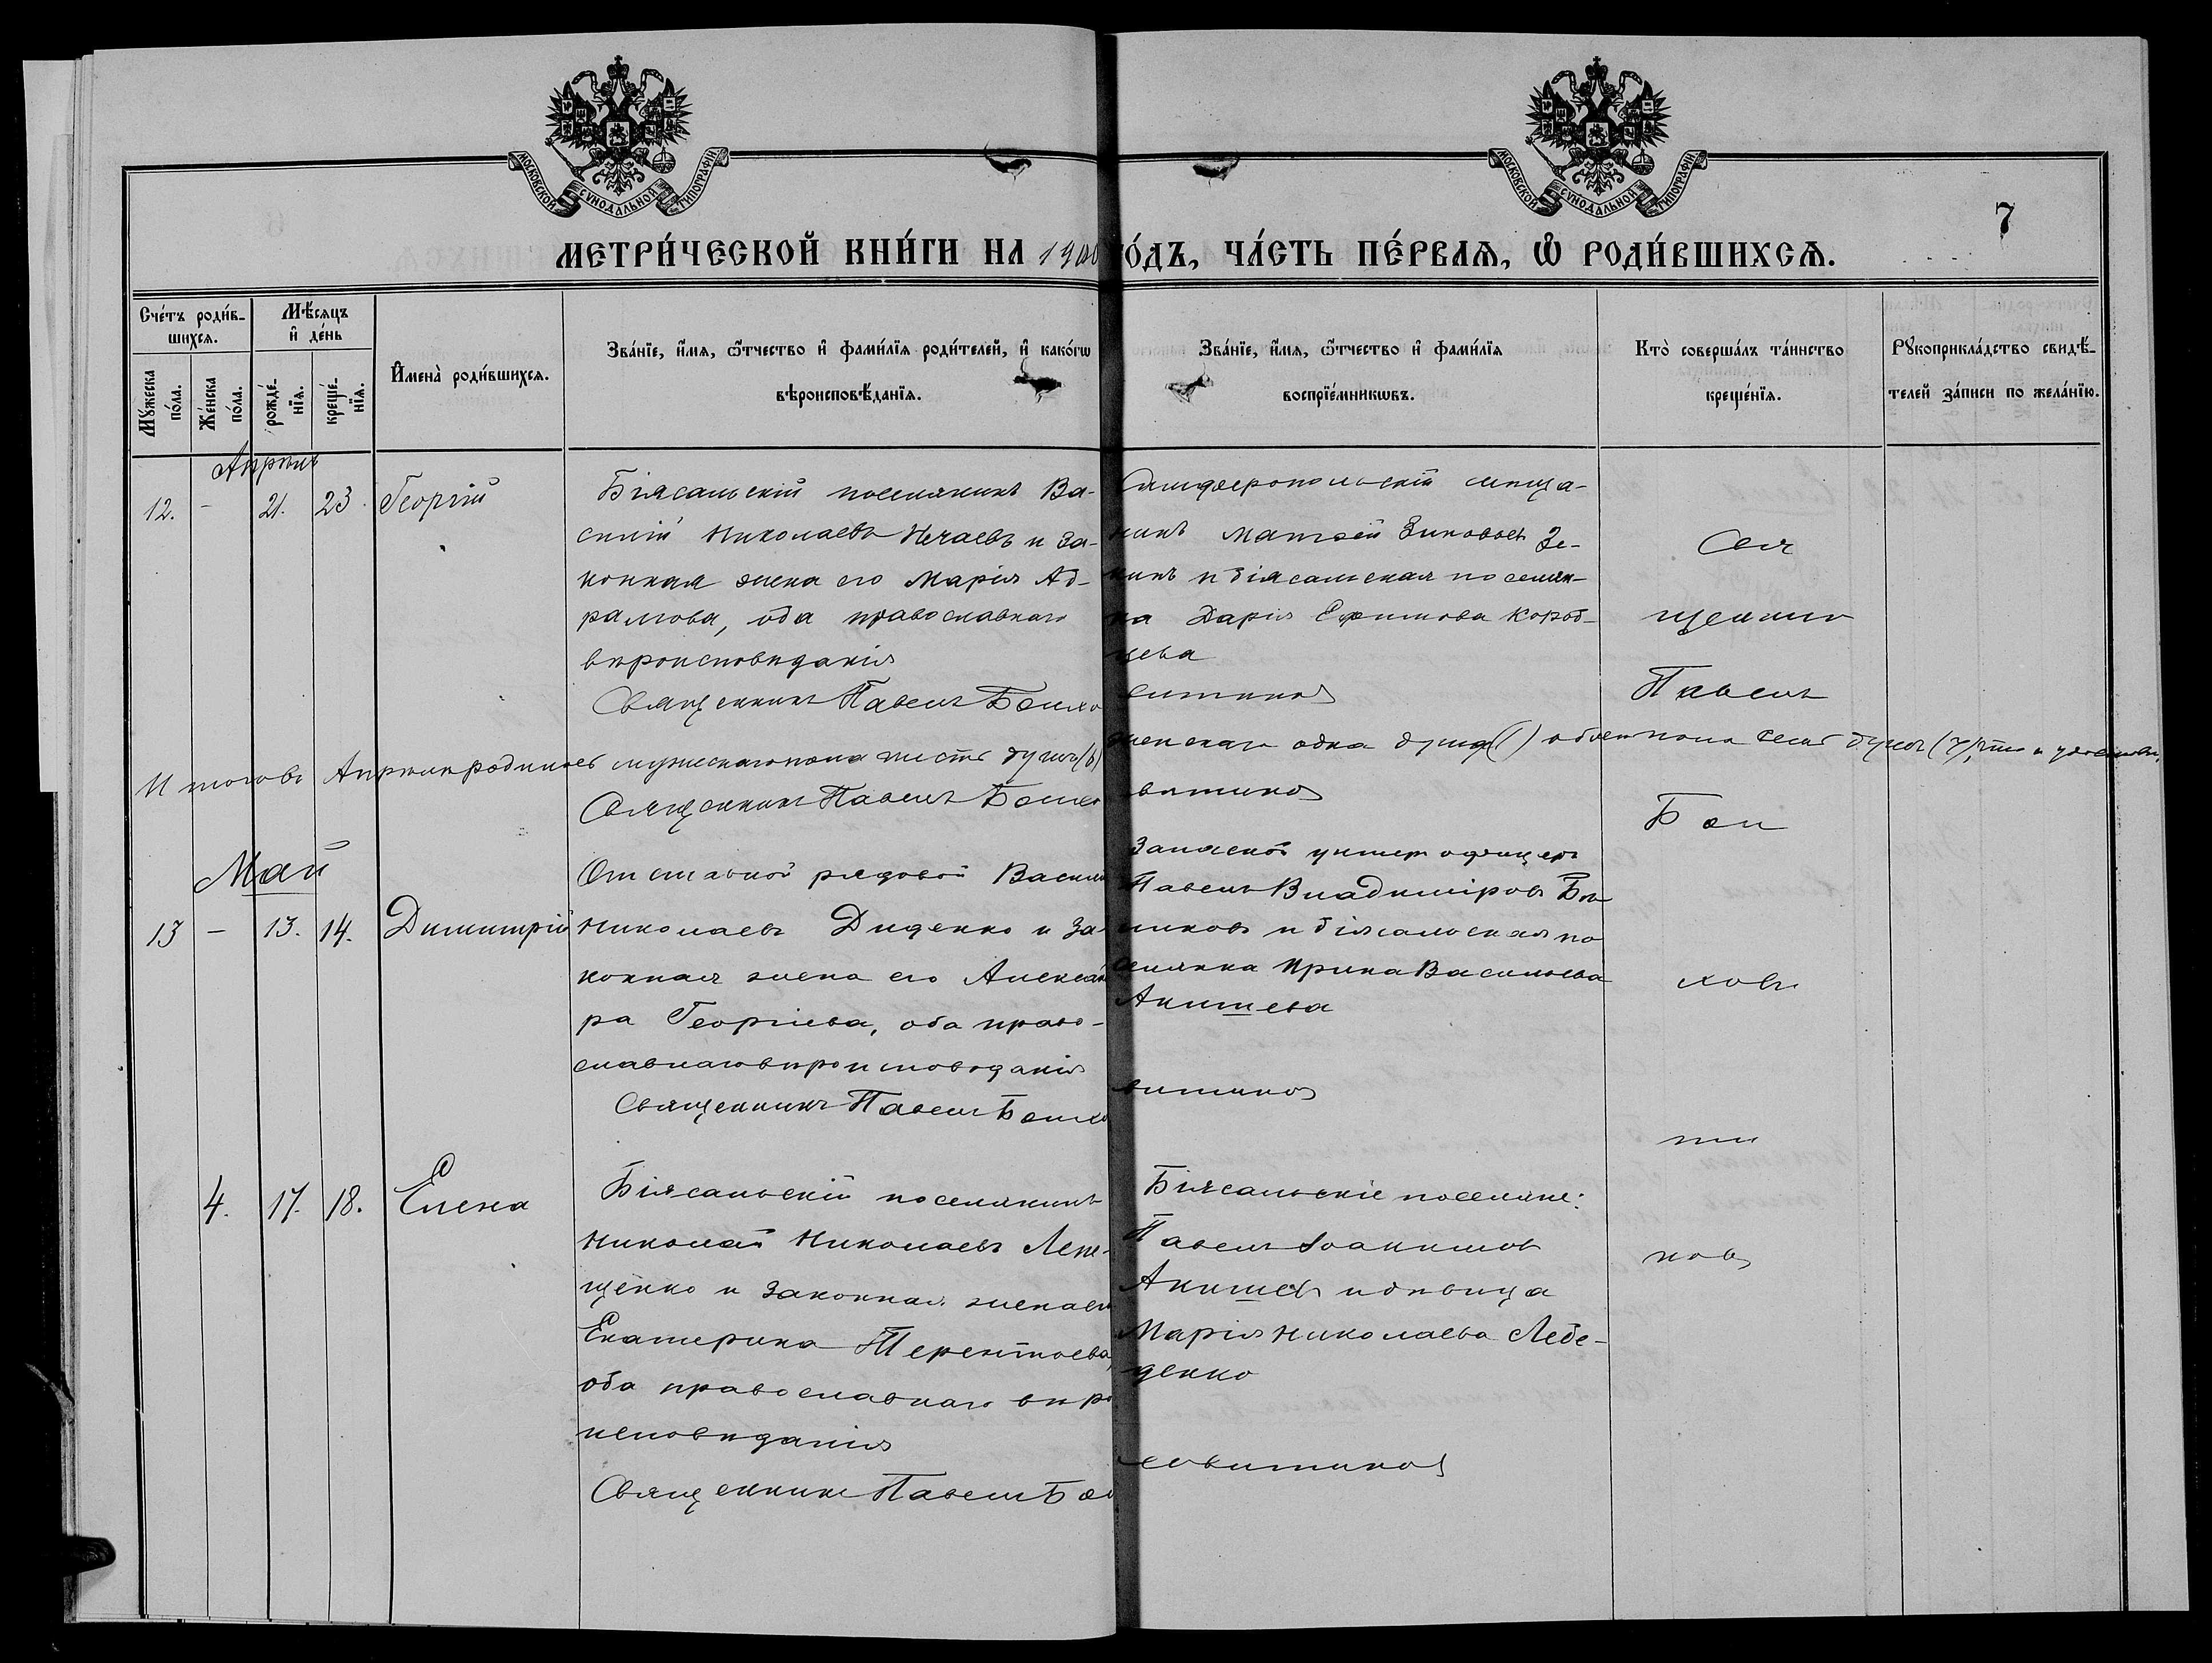 МОСКОВСКОЙ СУНОДАЛЬНОЙ ТИПОГРАФІИ.
МОСКОВСКОЙ СУНОДАЛЬНОЙ ТИПОГРАФІИ.
7
МЕТРИ́ЧЕСКОЙ КНИ́ГИ НА 1900 ГО́ДЪ, ЧА́СТЬ ПЕ́РВАѦ, Ѡ РОДИ́ВШИХСѦ.
Сче́тъ роди́в-
шихсѧ.
Мѣ́сѧцъ
и҆ де́нь
Мꙋ́жеска
по́ла.
Же́нска
по́ла.
рожде́-
нїѧ.
креще́-
нїѧ.
И҆мена̀ роди́вшихсѧ.
Зва́нїе, и҆́мѧ, ѻ҆́тчество и҆ фами́лїѧ роди́телей, и҆ како́гѡ
вѣроисповѣ́данїѧ.
Зва́нїе, и҆́мѧ, ѻ҆́тчество и҆ фами́лїѧ
воспрїе́мникѡвъ.
Кто̀ соверша́лъ та́инство
креще́нїѧ.
Рꙋкоприкла́дство свидѣ́-
телей за́писи по жела́нїю.
Апрѣль
12. - 21. 23. Георгій
Біясальскій поселянинъ Ва-
силій Николаевъ Нечаевъ и за-
конная жена его Марія Ад-
рамова, оба православнаго
вѣроисповѣданія
Священникъ Павелъ Болховитиновъ
Симферопольскій мѣща-
нинъ Матѳей Зиновьевъ Зе-
нинъ и біясальская поселян-
ка Дарія Ефимова Короб-
цева
Итого въ Апрѣлѣ родилось мужескаго пола шесть душъ (6) женскаго одна душа (1) обоего пола семь душъ (7), что и удостовѣр.
Священникъ Павелъ Болховитиновъ
Май
13 - 13. 14. Димитрій
Отставной рядовой Василій
Николаевъ Диденко и за-
конная жена его Александ
ра Георгіева, оба право-
славнаго вѣроисповѣданія
Священникъ Павелъ Болховитиновъ
Запасной унтеръ офицеръ
Павелъ Владиміровъ
и біясальская по
селянка Ирина Васильева
Акишева
4. 17. 18. Елена
Біясальскій поселянинъ
Николай Николаевъ Лепе-
щенко и законная жена его
Екатерина Терентьева,
оба православнаго вѣро
исповѣданія
Священникъ Павелъ Болховитиновъ
Біясальскіе поселяне:
Павелъ Іоакимовъ
Акишевъ и дѣвица
Марія Николаева Лебе-
денко
Свя
щенник
Павелъ
Бол
хови
ти
новъ